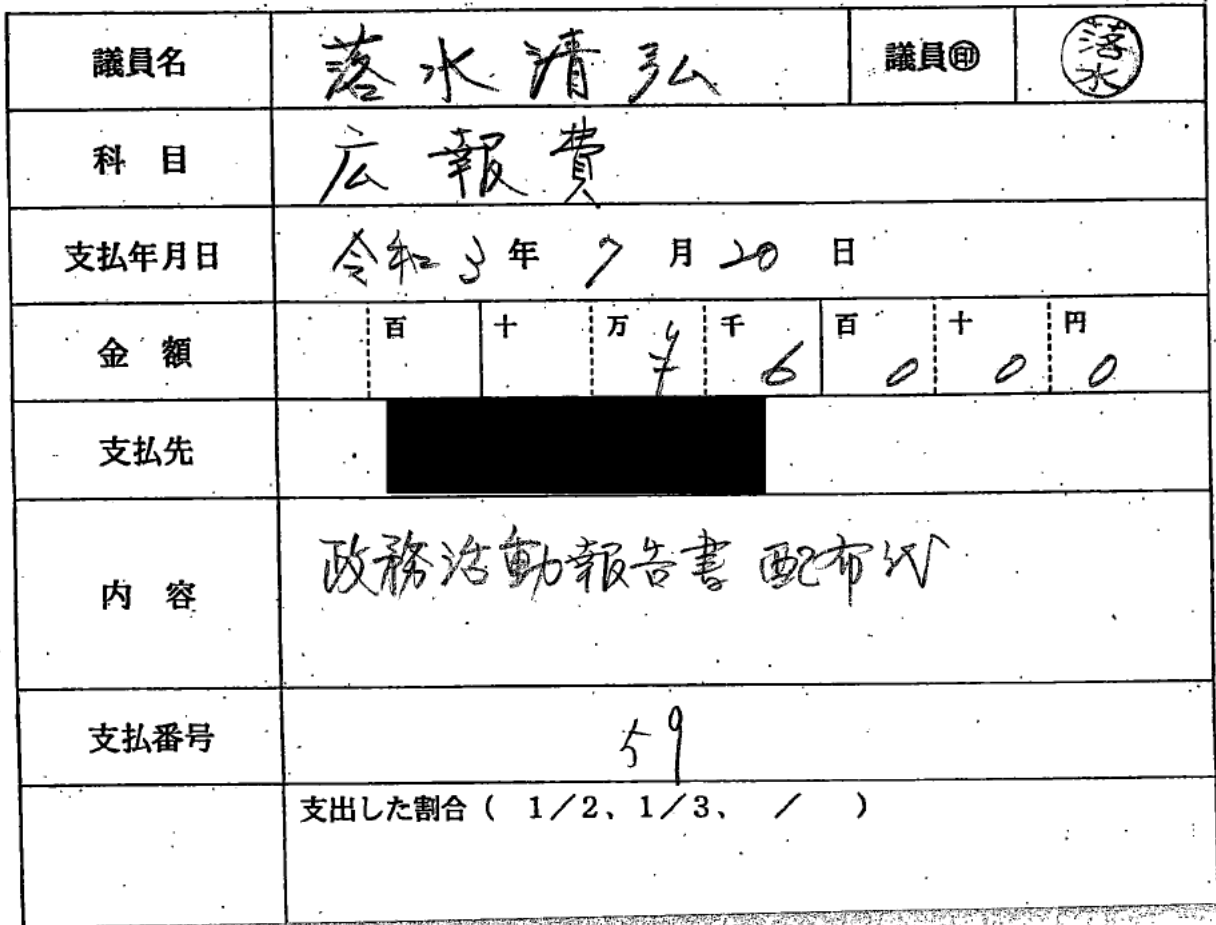 議員名 落水清弘 議員㊞ 落水
科 目 広報費
支払年月日 令和3年 7月 20日
金 額 百 十 万 千 百 十 円
¥ 6 0 0 0
支払先
内 容 政務活動報告書 配布代
支払番号 59
支出した割合( 1/2、1/3、 / )